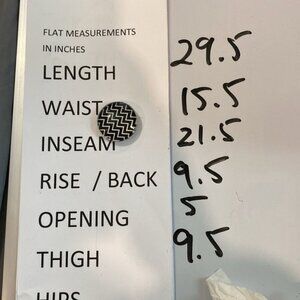 FLAT MEASUREMENTS
IN INCHES
LENGTH 29.5
WAIST 15.5
INSEAM 21.5
RISE / BACK 9.5
OPENING 5
THIGH 9.5
HIPS